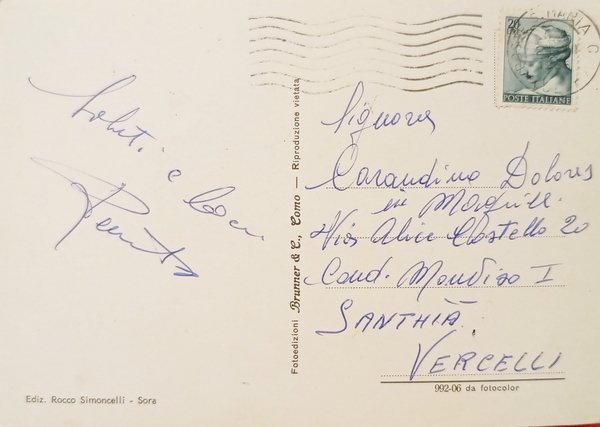 Saluti e baci
20
POSTE ITALIANE
Signora
Carandino Dolores
in
Via Alice Castello 20
Cond. I
SANTHIÀ
VERCELLI
Fotoedizioni Brunner & C., Como — Riproduzione vietata
Ediz. Rocco Simoncelli - Sora
992-06 da fotocolor